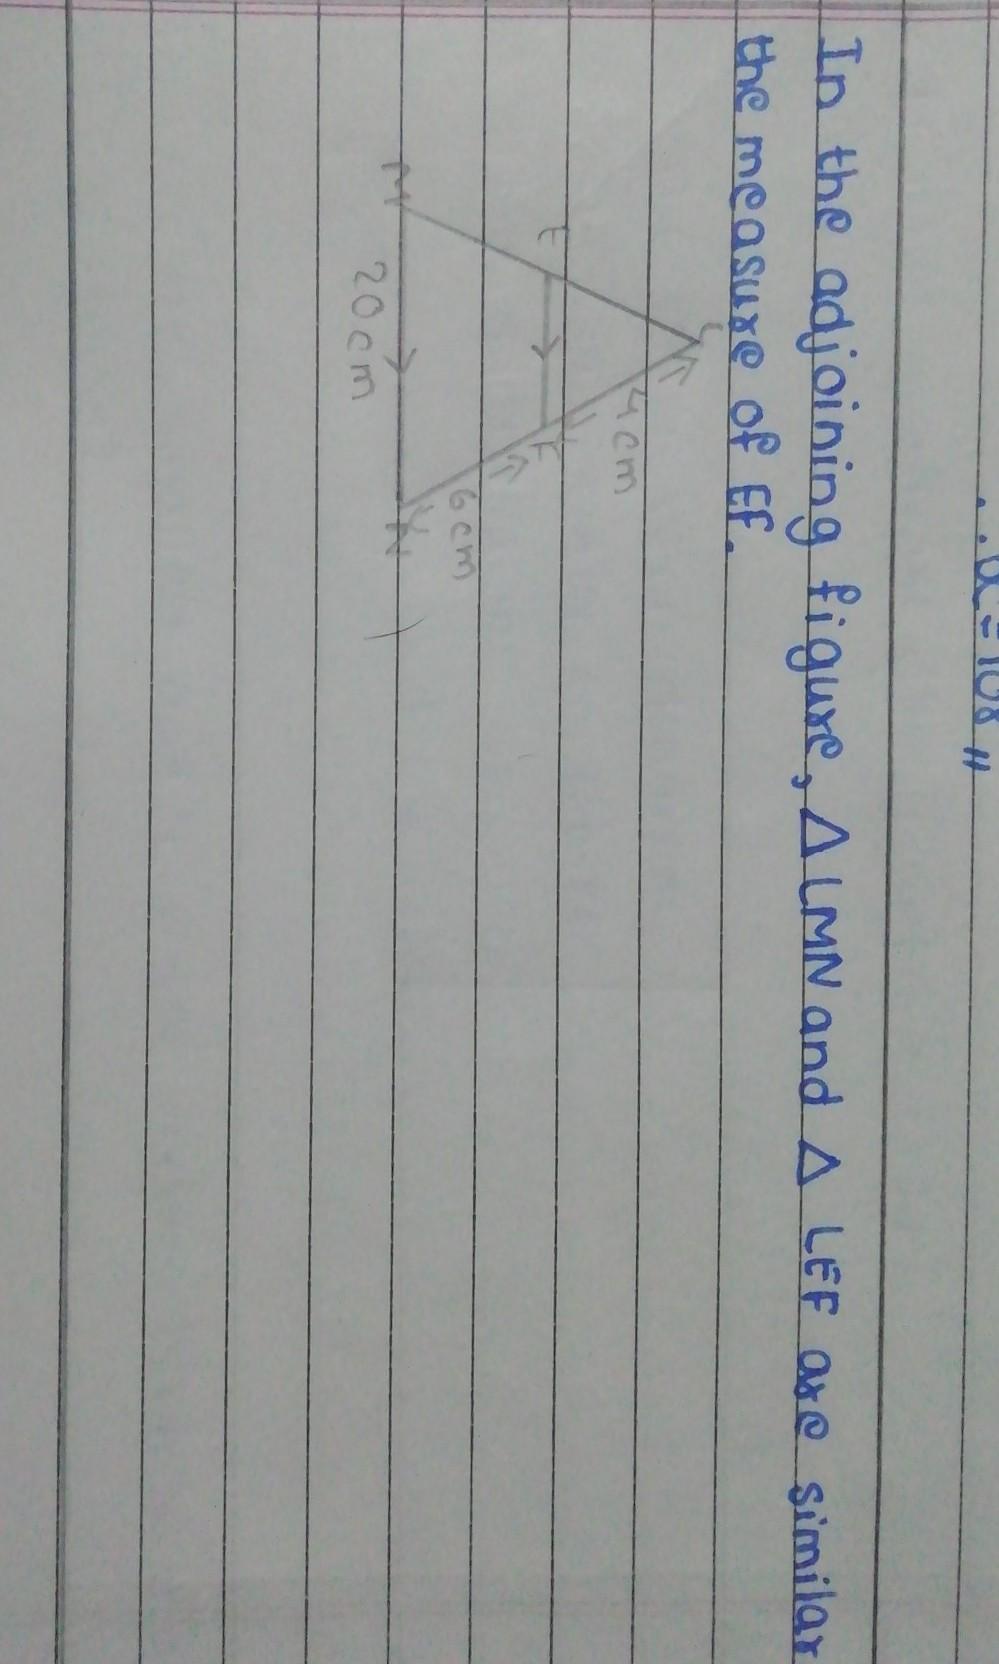 ∴ a = 108 "
In the adjoining figure, Δ LMN and Δ LEF are similar
the measure of EF.
L
4cm
E
F
6cm
M
N
20cm